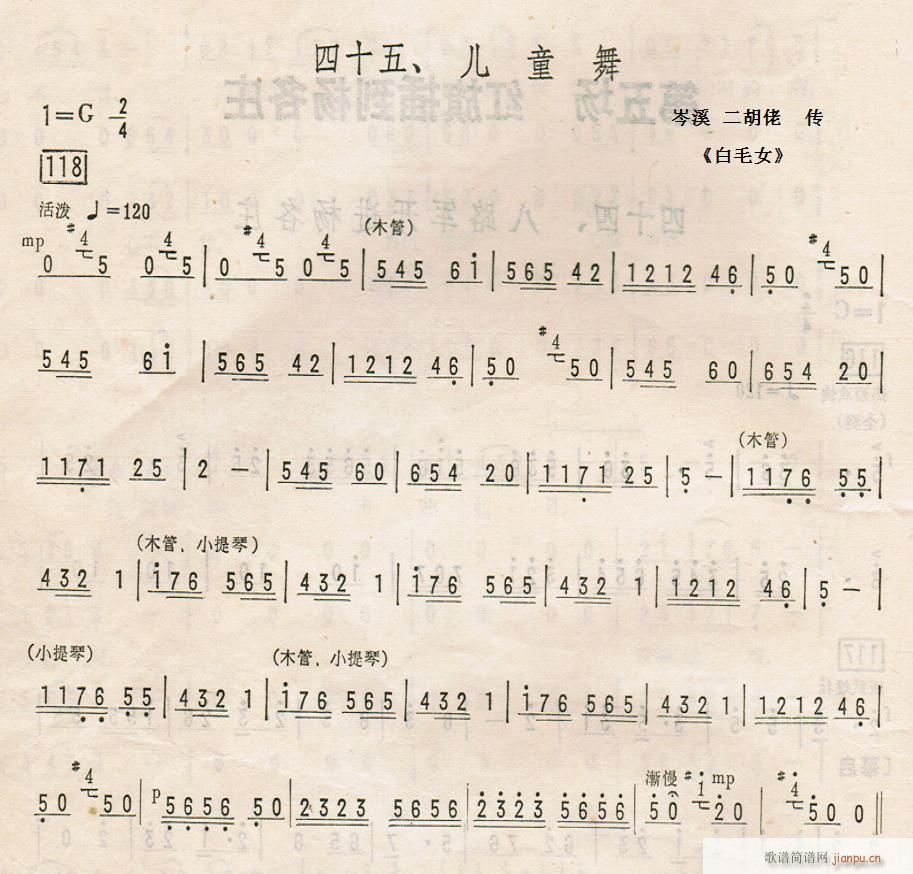 四十五、儿童舞
1=G 2/4
岑溪 二胡佬 传
《白毛女》
118
活泼 ♩=120
(木管)
mp #4 4 #4 4 #4
0 5 0 5 | 0 5 0 5 | 545 6i | 565 42 | 1212 46 | 50 50 |
#4
545 6i | 565 42 | 1212 46 | 50 50 | 545 60 | 654 20 |
(木管)
1171 25 | 2 – | 545 60 | 654 20 | 1171 25 | 5 – | 1176 55 |
(木管, 小提琴)
432 1 | i76 565 | 432 1 | i76 565 | 432 1 | 1212 46 | 5 – |
(小提琴) (木管, 小提琴)
1176 55 | 432 1 | i76 565 | 432 1 | i76 565 | 432 1 | 1212 46 |
#4 渐慢 #1 mp #4
50 50 | p 5656 50 | 2323 5656 | 2323 5656 | 50 20 | 50 0 ||
歌谱简谱网 jianpu.cn